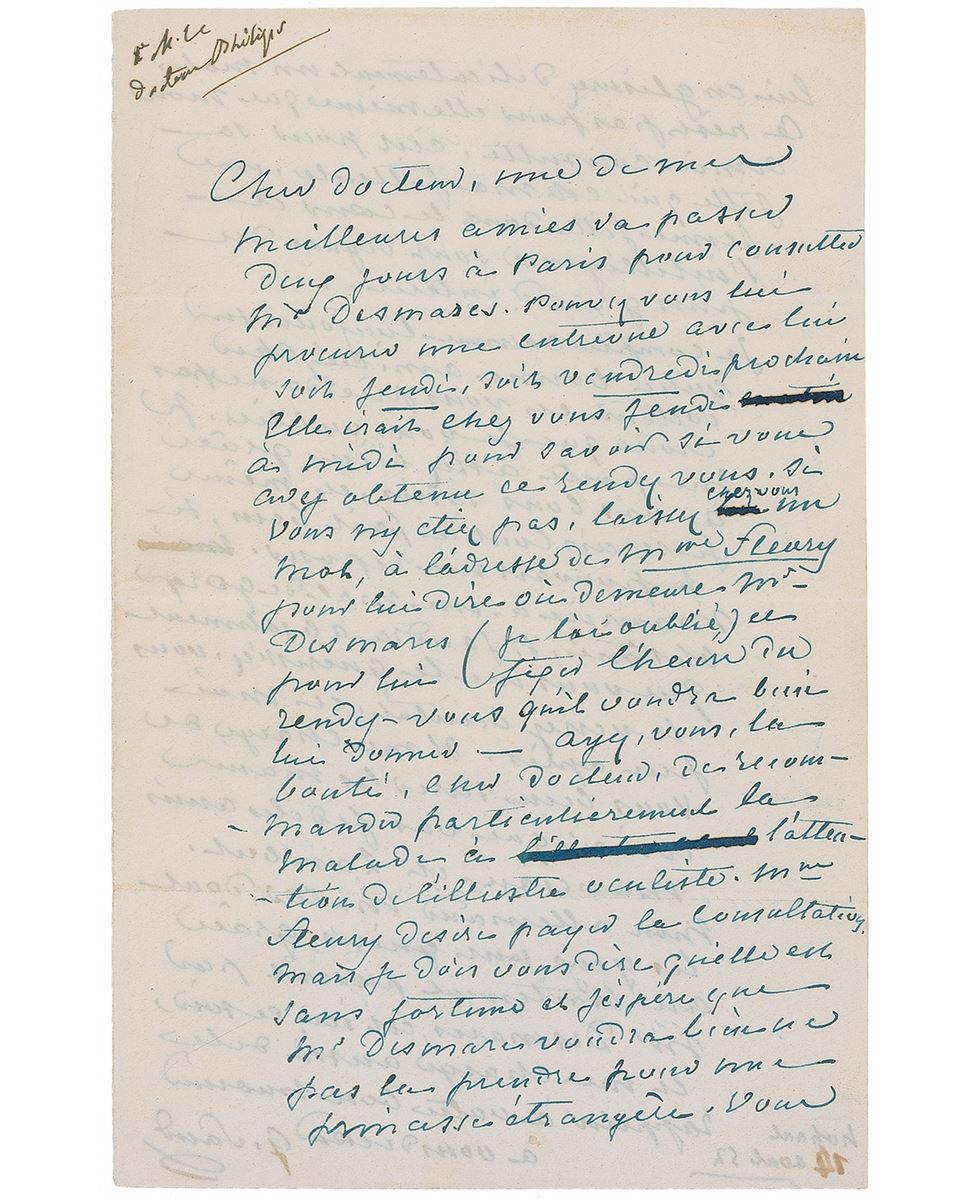 à M. le
docteur Philips
Cher docteur, une de mes
meilleures amies va passer
deux jours à Paris pour consulter
Mr Desmares. Pouvez vous lui
procurer une entrevue avec lui
soit jeudi, soit vendredi prochain
Elle irait chez vous jeudi
à midi pour savoir si vous
avez obtenu ce rendez vous. si
vous n'y etiez pas, laissez chez vous un
mot, à l'adresse de Mme Fleury
pour lui dire ou demeure Mr
Desmares (je l'ai oublié,) et
pour lui fixer l'heure du
rendez-vous qu'il voudra bien
lui donner — ayez, vous, la
bonté, cher docteur, de recom-
-mander particulierement la
malade à l'atten-
-tion de l'illustre oculiste. Mme
Fleury désire payer la consultation,
mais je dois vous dire qu'elle est
sans fortune et j'espère que
Mr Desmares voudra bien ne
pas la prendre pour une
princesse étrangère. Vous